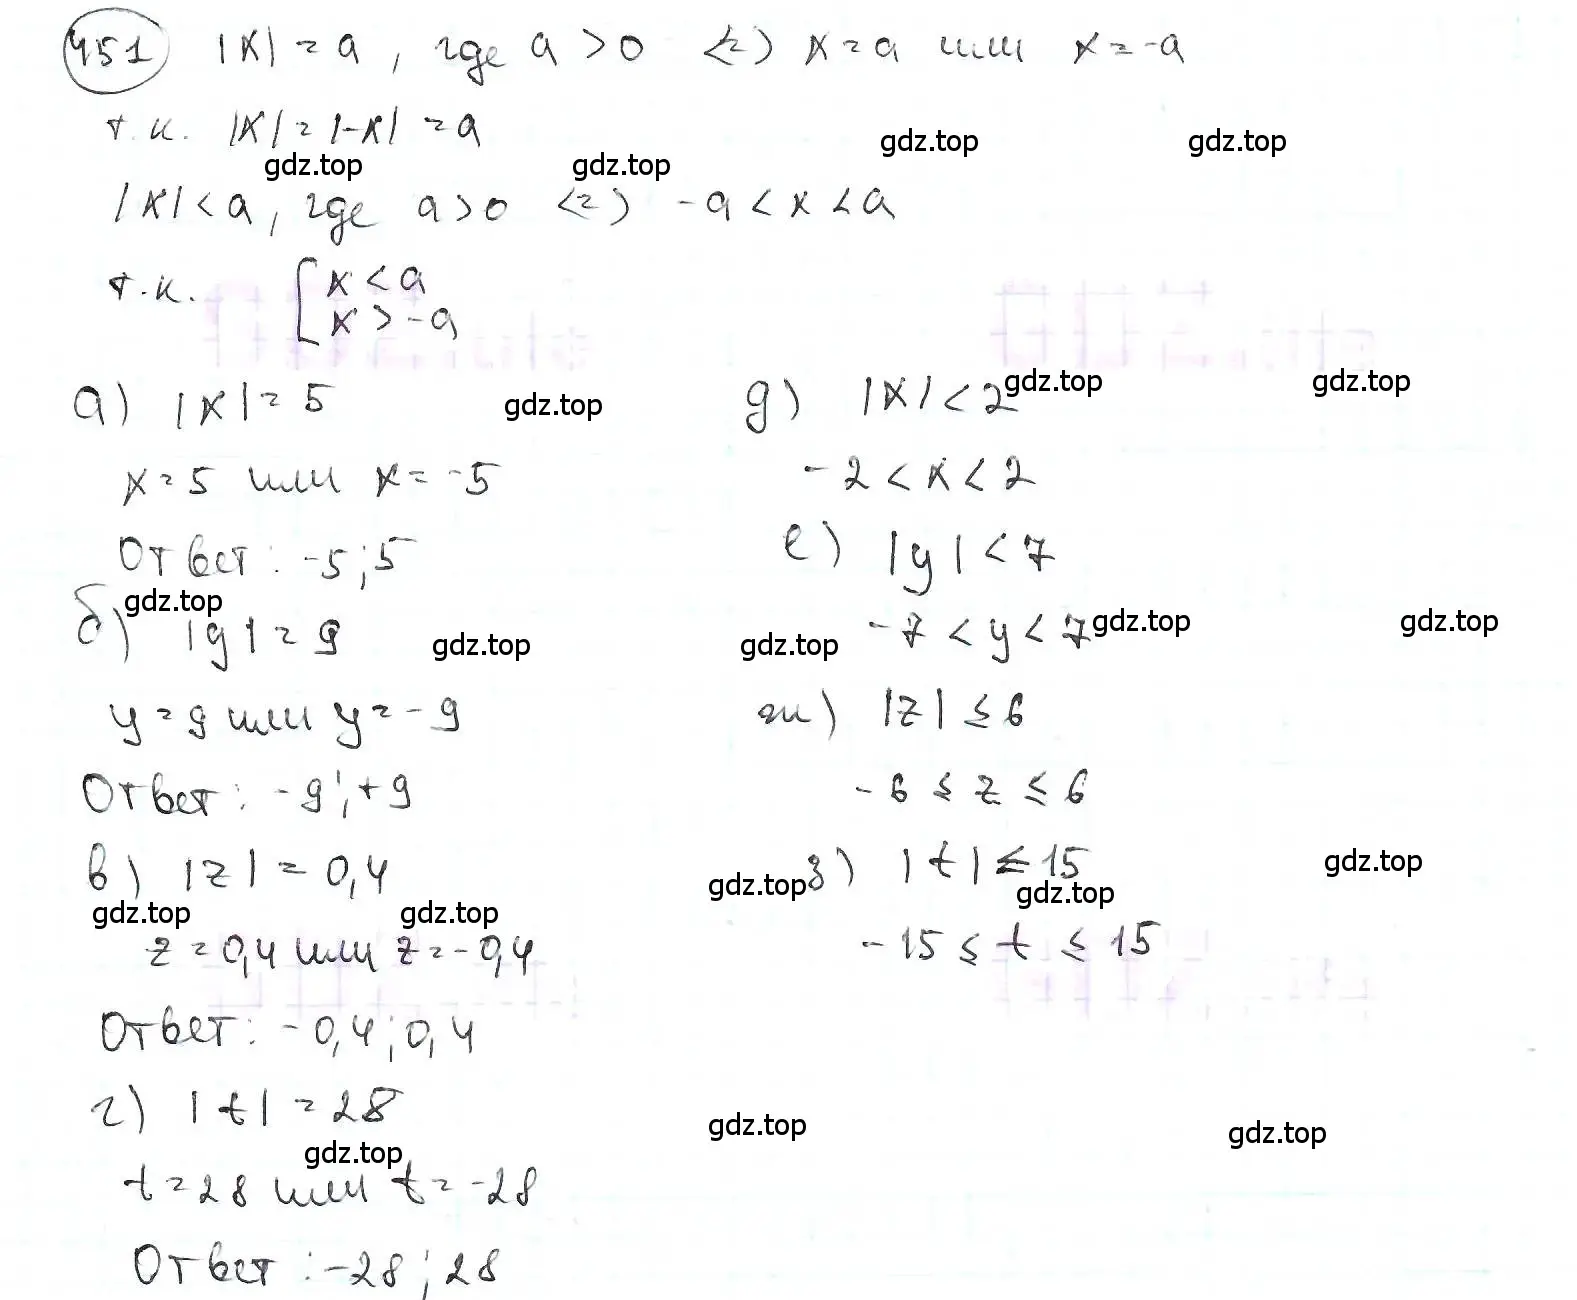 451 |x| = a, где a > 0 <=> x = a или x = -a
т.к. |x| = |-x| = a
gdz.top gdz.top gdz.top gdz.top
|x| < a, где a > 0 <=> -a < x < a
т.к. [ x < a
x > -a
а) |x| = 5
gdz.top
x = 5 или x = -5
Ответ: -5; 5
gdz.top
б) |y| = 9
gdz.top
y = 9 или y = -9
Ответ: -9; +9
в) |z| = 0,4
gdz.top gdz.top
z = 0,4 или z = -0,4
Ответ: -0,4; 0,4
г) |t| = 28
gdz.top
t = 28 или t = -28
Ответ: -28; 28
д) |x| < 2
gdz.top gdz.top
-2 < x < 2
е) |y| < 7
-7 < y < 7
gdz.top gdz.top gdz.top
ж) |z| ≤ 6
-6 ≤ z ≤ 6
з) |t| ≤ 15
gdz.top gdz.top gdz.top
-15 ≤ t ≤ 15
gdz.top gdz.top